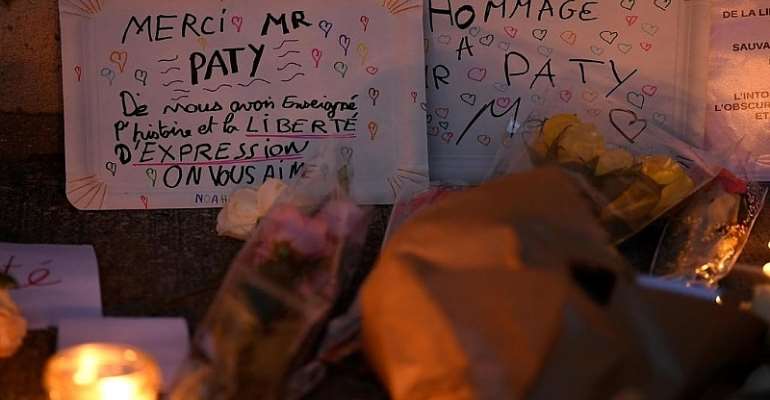 MERCI MR
PATY
De nous avoir Enseigné
l'histoire et la LIBERTÉ
D'EXPRESSION
ON VOUS AIME
NOAH
HOMMAGE
A
MR PATY
DE LA LI
SAUVA
L'INTO
L'OBSCUR
ET
té